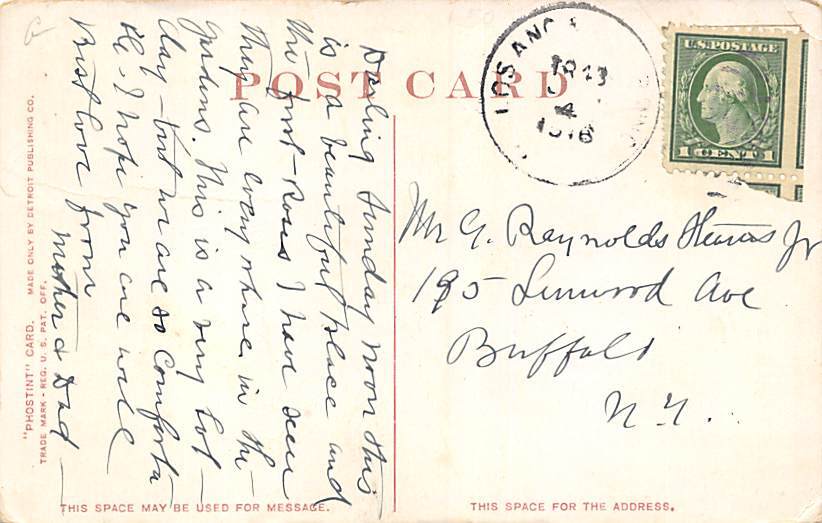 POST CARD
LOS ANG
4
1916
U.S. POSTAGE
1 CENT 1
Darling Sunday noon this
is a beautiful place and
the first - Roses I have seen
They are every where in the
gardens. This is a very hot -
day - but we are so comforta
ble. I hope you are well
Best love from
Mother & Dad
Mr G. Reynolds Jr
195 Linwood Ave
Buffalo
N.Y.
"PHOSTINT" CARD. MADE ONLY BY DETROIT PUBLISHING CO.
TRADE MARK - REG. U. S. PAT. OFF.
THIS SPACE MAY BE USED FOR MESSAGE.
THIS SPACE FOR THE ADDRESS.